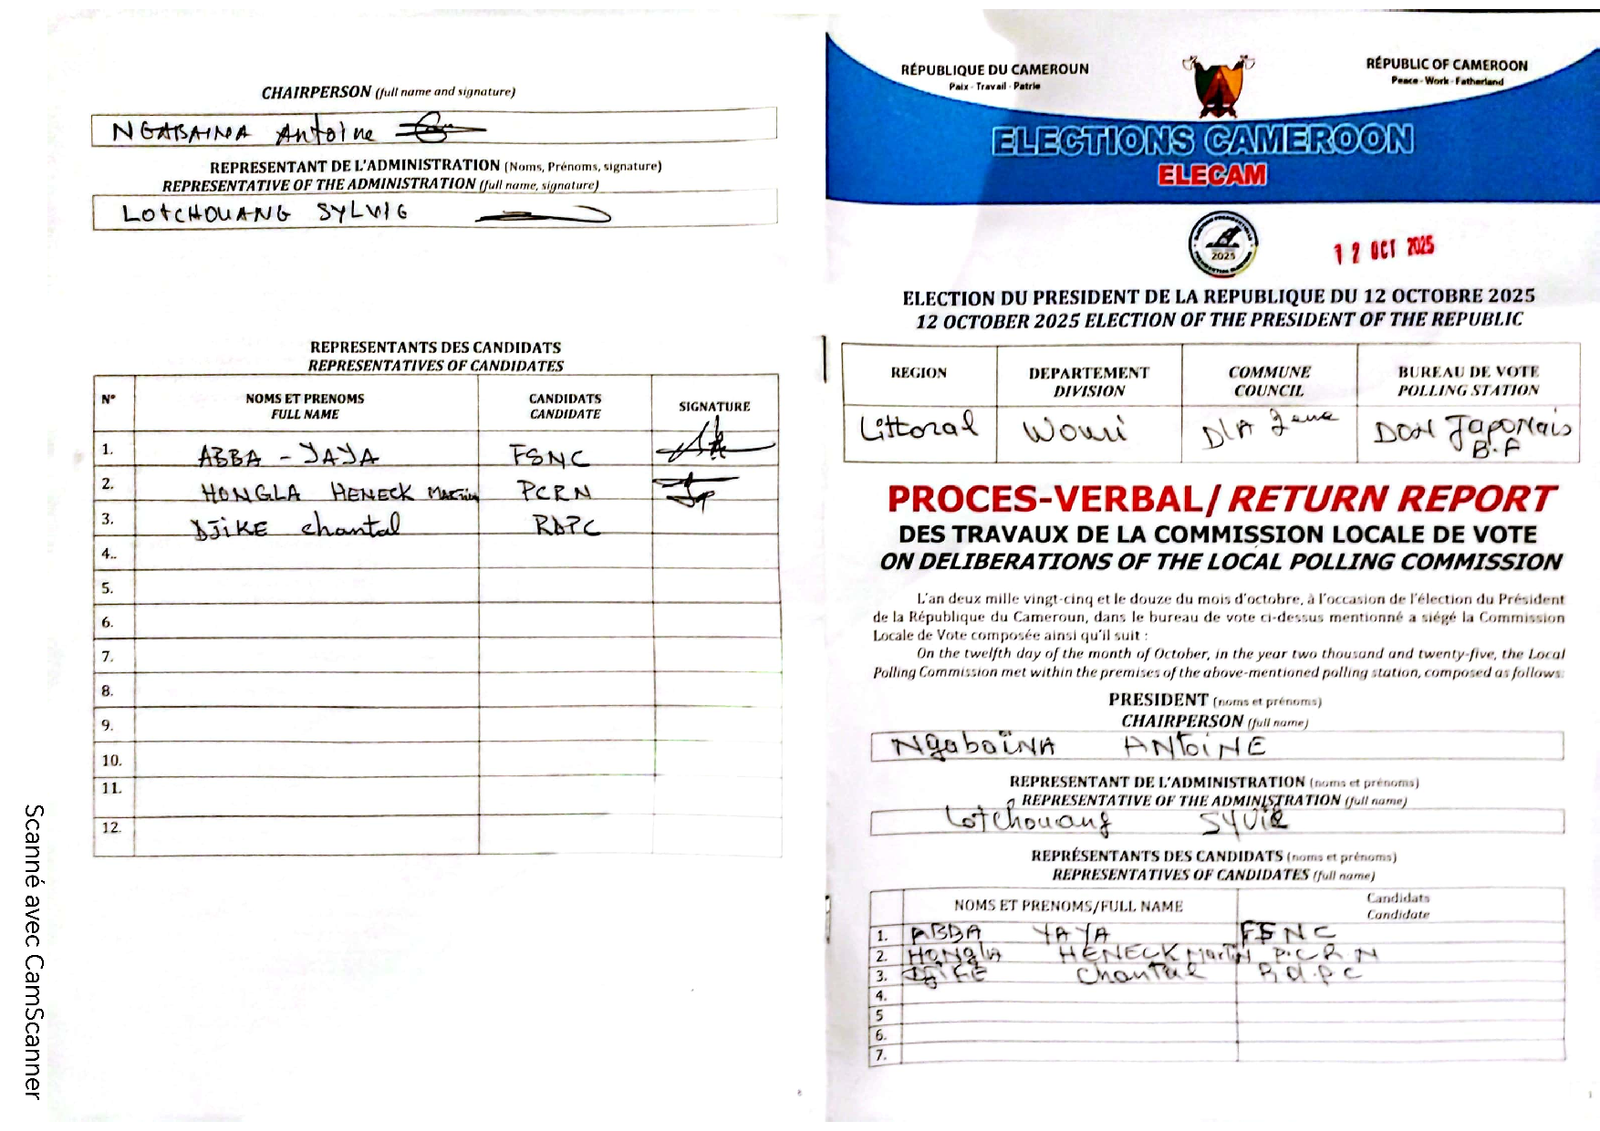 CHAIRPERSON (full name and signature)
NGABAINA Antoine
REPRESENTANT DE L'ADMINISTRATION (Noms, Prénoms, signature)
REPRESENTATIVE OF THE ADMINISTRATION (full name, signature)
LOTCHOUANG SYLVIE
REPRESENTANTS DES CANDIDATS
REPRESENTATIVES OF CANDIDATES
N° NOMS ET PRENOMS FULL NAME CANDIDATS CANDIDATE SIGNATURE
1. ABBA - YAYA FSNC
2. HONGLA HENECK Martin PCRN
3. DJIKE chantal RDPC
4..
5.
6.
7.
8.
9.
10.
11.
12.
Scanné avec CamScanner
RÉPUBLIQUE DU CAMEROUN
Paix - Travail - Patrie
RÉPUBLIC OF CAMEROON
Peace - Work - Fatherland
ELECTIONS CAMEROON
ELECAM
2025
12 OCT 2025
ELECTION DU PRESIDENT DE LA REPUBLIQUE DU 12 OCTOBRE 2025
12 OCTOBER 2025 ELECTION OF THE PRESIDENT OF THE REPUBLIC
REGION DEPARTEMENT DIVISION COMMUNE COUNCIL BUREAU DE VOTE POLLING STATION
Littoral Wouri D'LA 2eme DON Japonais B.F
PROCES-VERBAL/RETURN REPORT
DES TRAVAUX DE LA COMMISSION LOCALE DE VOTE
ON DELIBERATIONS OF THE LOCAL POLLING COMMISSION
L'an deux mille vingt-cinq et le douze du mois d'octobre, à l'occasion de l'élection du Président
de la République du Cameroun, dans le bureau de vote ci-dessus mentionné a siégé la Commission
Locale de Vote composée ainsi qu'il suit :
On the twelfth day of the month of October, in the year two thousand and twenty-five, the Local
Polling Commission met within the premises of the above-mentioned polling station, composed as follows:
PRESIDENT (noms et prénoms)
CHAIRPERSON (full name)
NgabaïNA ANtoiNE
REPRESENTANT DE L'ADMINISTRATION (noms et prénoms)
REPRESENTATIVE OF THE ADMINISTRATION (full name)
Lotchouang SYLVIE
REPRÉSENTANTS DES CANDIDATS (noms et prénoms)
REPRESENTATIVES OF CANDIDATES (full name)
NOMS ET PRENOMS/FULL NAME Candidats Candidate
1. ABBA YAYA FSNC
2. HONgla HENECK Martin P.C.R.N
3. DJIKE Chantal R.D.P.C
4.
5
6.
7.